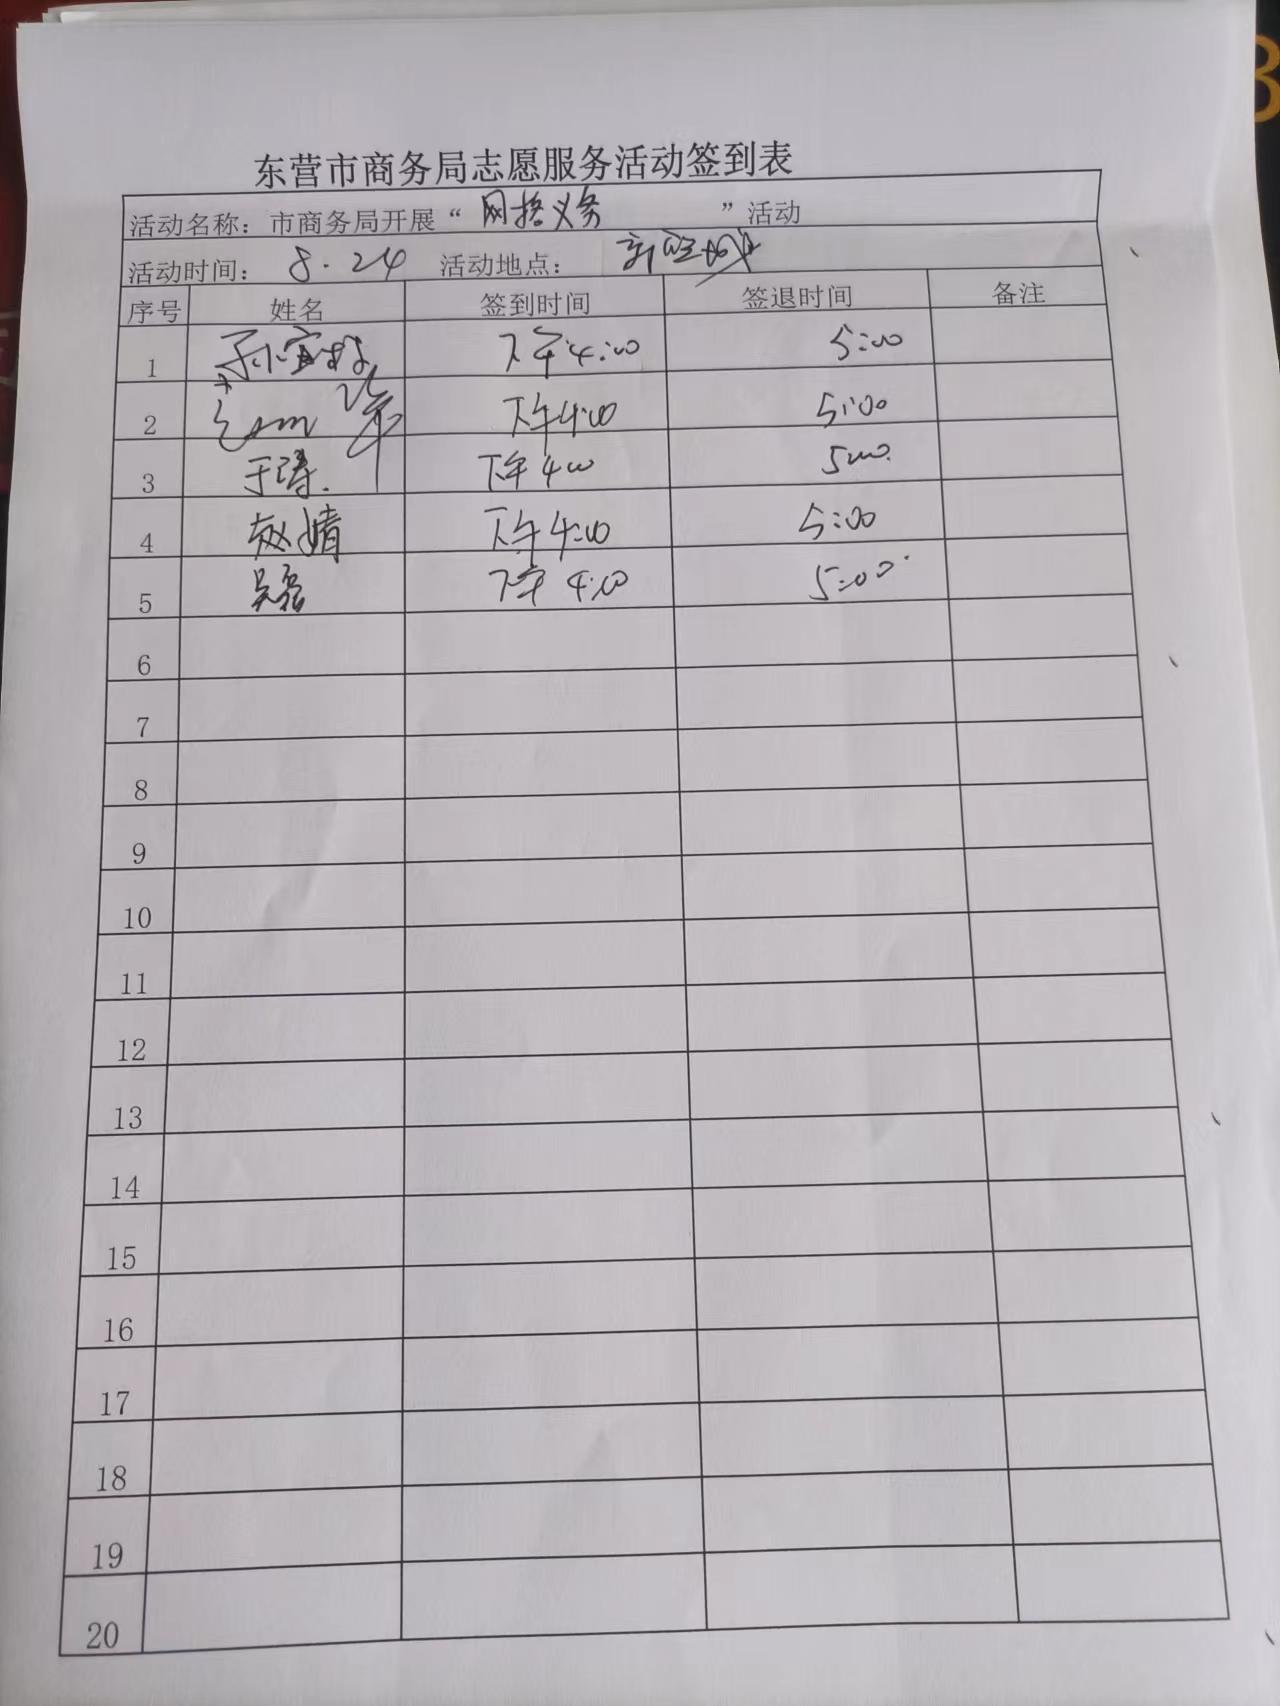 东营市商务局志愿服务活动签到表
活动名称：市商务局开展“网格义务”活动
活动时间：8.24 活动地点：
序号 姓名 签到时间 签退时间 备注
1 下午4:00 5:00
2 下午4:00 5:00
3 于涛. 下午4:00 5:00.
4 赵婧 下午4:00 5:00
5 吴磊 下午4:00 5:00
6
7
8
9
10
11
12
13
14
15
16
17
18
19
20